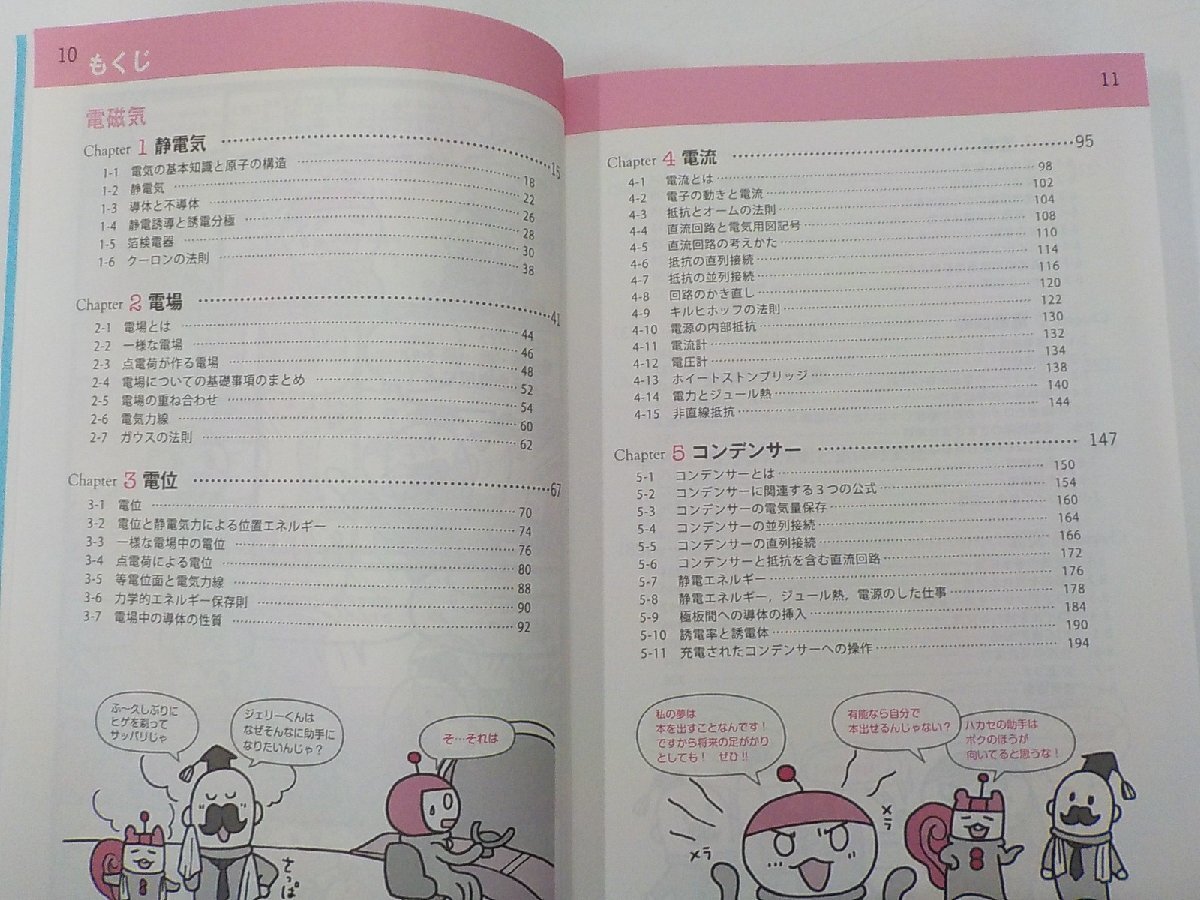 10 もくじ
電磁気
Chapter 1 静電気 15
1-1 電気の基本知識と原子の構造 18
1-2 静電気 22
1-3 導体と不導体 26
1-4 静電誘導と誘電分極 28
1-5 箔検電器 30
1-6 クーロンの法則 38
Chapter 2 電場 41
2-1 電場とは 44
2-2 一様な電場 46
2-3 点電荷が作る電場 48
2-4 電場についての基礎事項のまとめ 52
2-5 電場の重ね合わせ 54
2-6 電気力線 60
2-7 ガウスの法則 62
Chapter 3 電位 67
3-1 電位 70
3-2 電位と静電気力による位置エネルギー 74
3-3 一様な電場中の電位 76
3-4 点電荷による電位 80
3-5 等電位面と電気力線 88
3-6 力学的エネルギー保存則 90
3-7 電場中の導体の性質 92
ふ〜久しぶりに
ヒゲを剃って
サッパリじゃ
ジェリーくんは
なぜそんなに助手に
なりたいんじゃ？
そ…それは
さっぱ
11
Chapter 4 電流 95
4-1 電流とは 98
4-2 電子の動きと電流 102
4-3 抵抗とオームの法則 104
4-4 直流回路と電気用図記号 108
4-5 直流回路の考えかた 110
4-6 抵抗の直列接続 114
4-7 抵抗の並列接続 116
4-8 回路のかき直し 120
4-9 キルヒホッフの法則 122
4-10 電源の内部抵抗 130
4-11 電流計 132
4-12 電圧計 134
4-13 ホイートストンブリッジ 138
4-14 電力とジュール熱 140
4-15 非直線抵抗 144
Chapter 5 コンデンサー 147
5-1 コンデンサーとは 150
5-2 コンデンサーに関連する３つの公式 154
5-3 コンデンサーの電気量保存 160
5-4 コンデンサーの並列接続 164
5-5 コンデンサーの直列接続 166
5-6 コンデンサーと抵抗を含む直流回路 172
5-7 静電エネルギー 176
5-8 静電エネルギー，ジュール熱，電源のした仕事 178
5-9 極板間への導体の挿入 184
5-10 誘電率と誘電体 190
5-11 充電されたコンデンサーへの操作 194
私の夢は
本を出すことなんです！
ですから将来の足がかり
としても！ ぜひ!!
有能なら自分で
本出せるんじゃない？
ハカセの助手は
ボクのほうが
向いてると思うな！
メラ
メラ